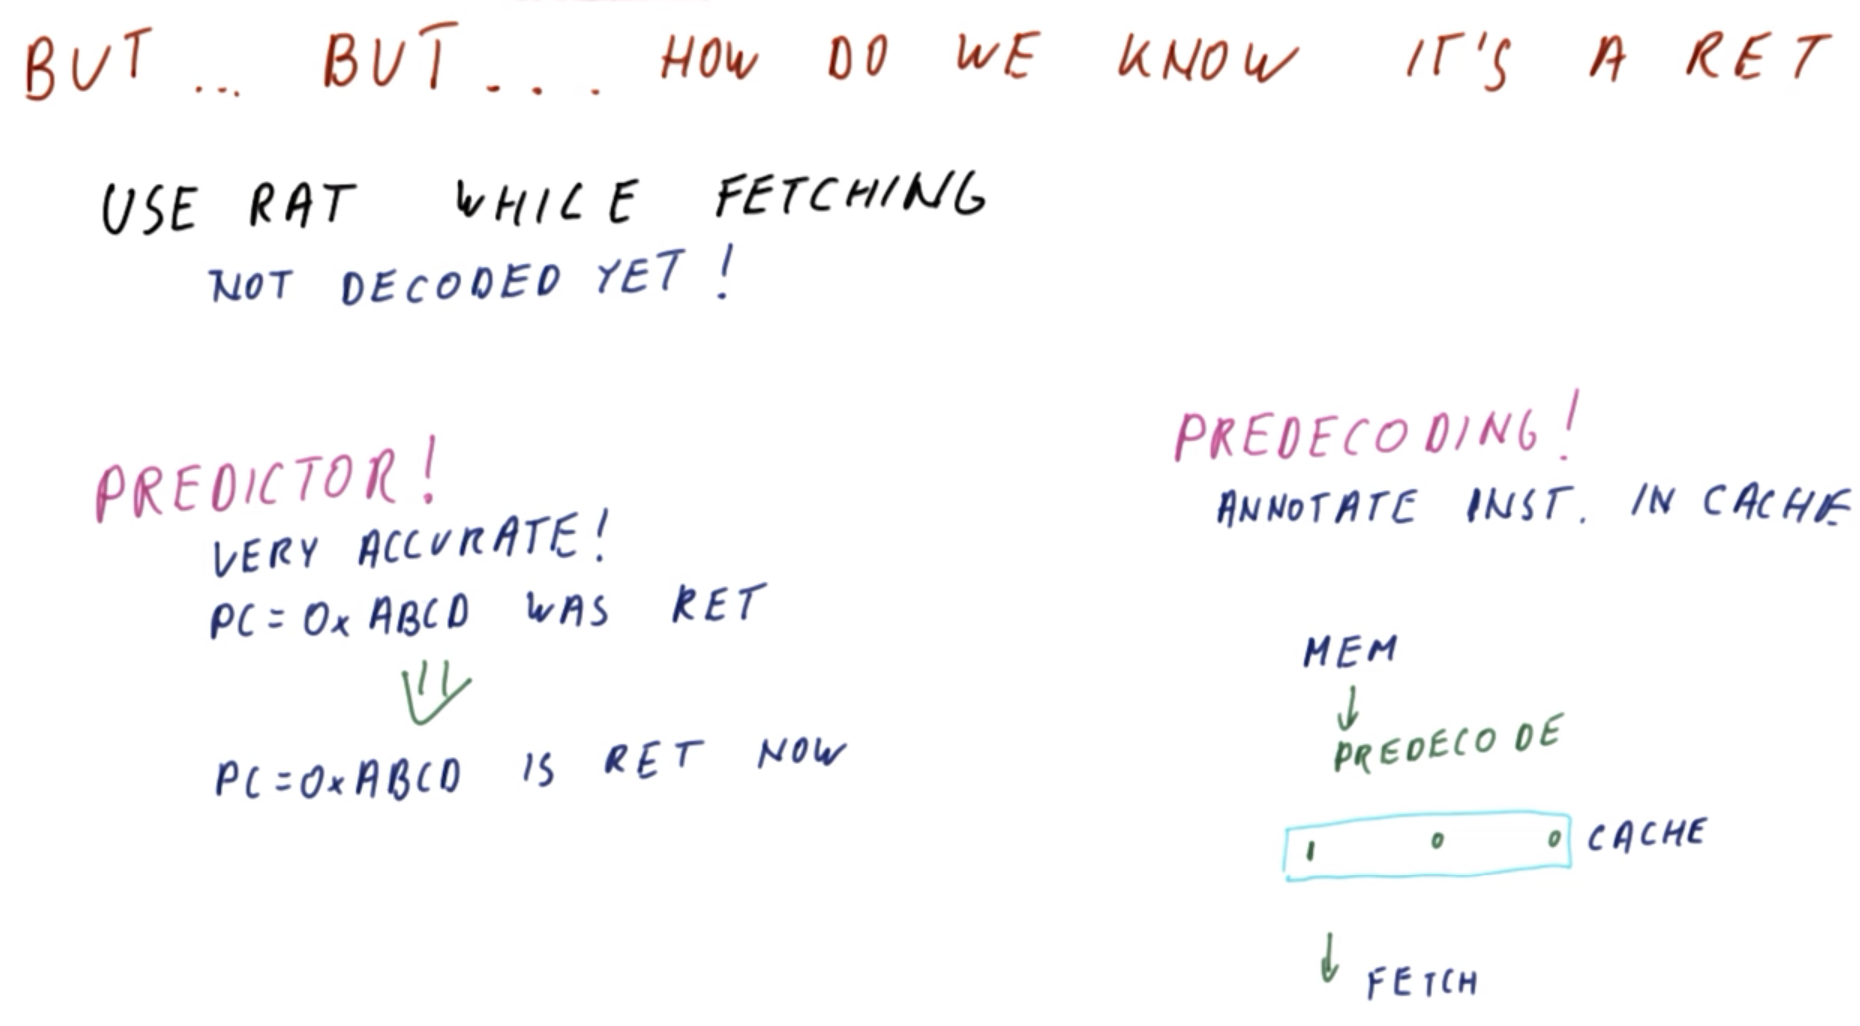 BUT... BUT... HOW DO WE KNOW IT'S A RET
USE RAT WHILE FETCHING
NOT DECODED YET!
PREDICTOR!
VERY ACCURATE!
PC=0xABCD WAS RET
PC=0xABCD IS RET NOW
PREDECODING!
ANNOTATE INST. IN CACHE
MEM
PREDECODE
1 0 0 CACHE
FETCH